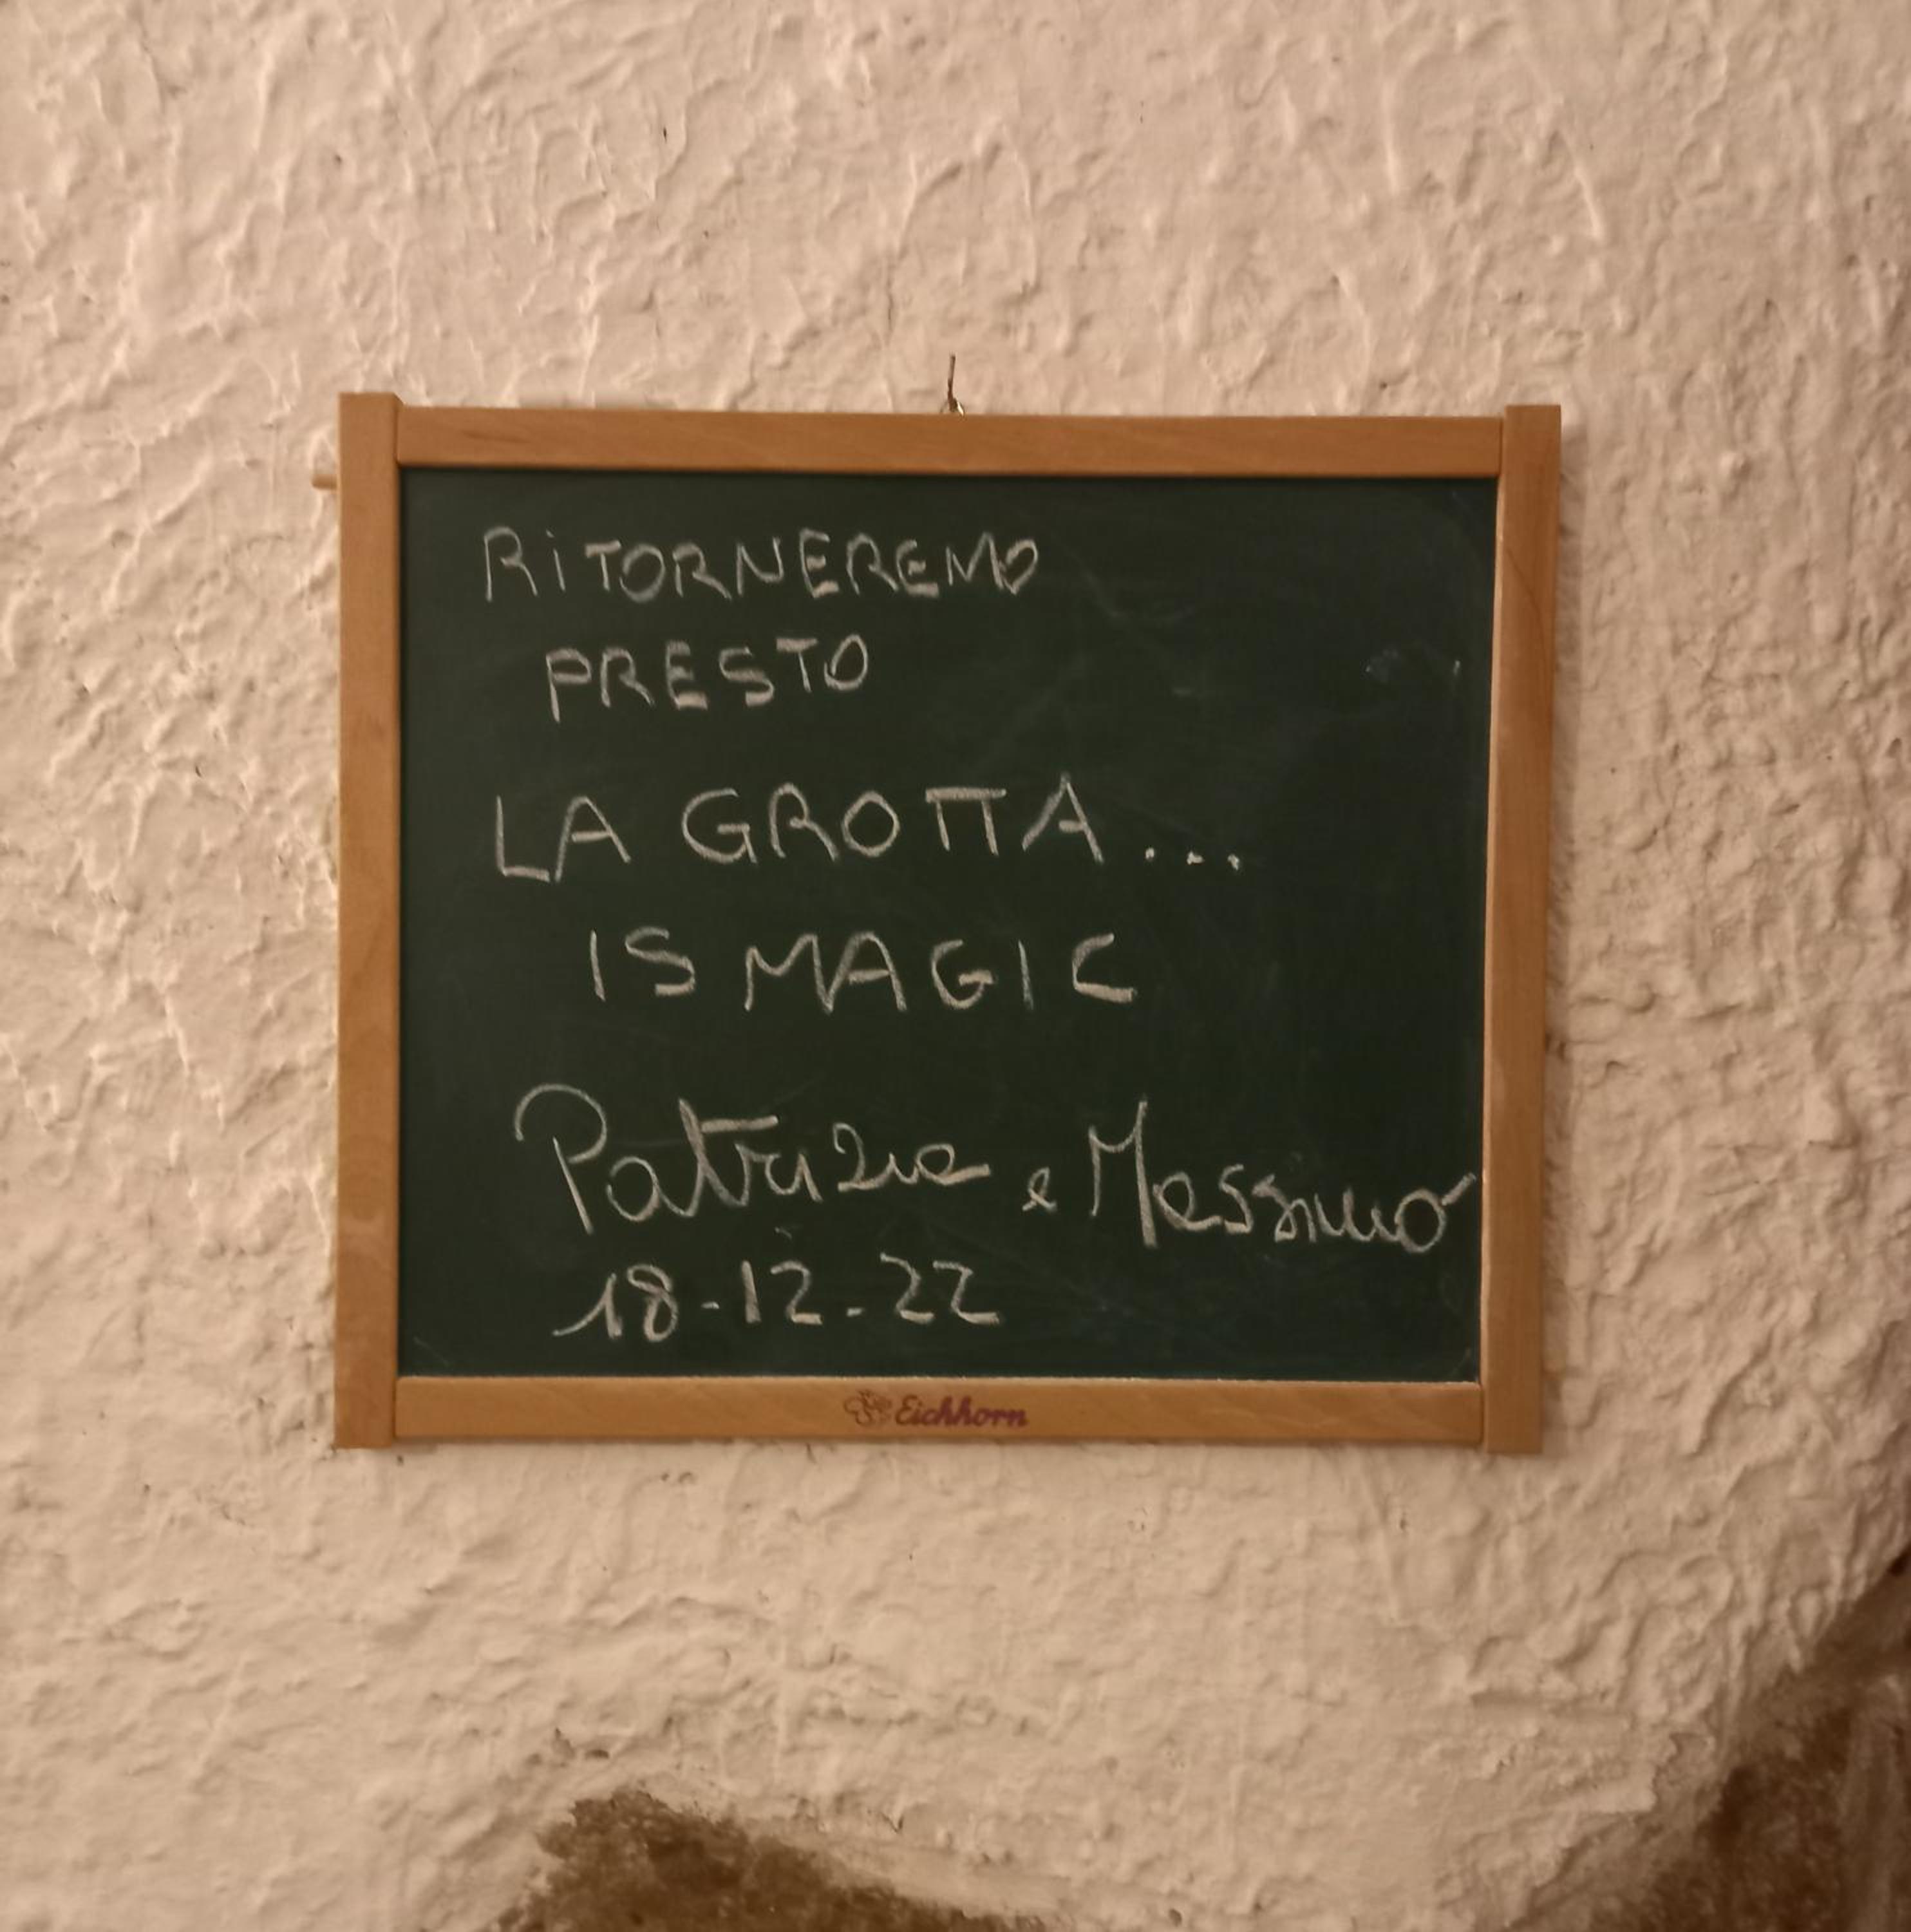 RiTORNEREMO
PRESTO
LA GROTTA...
IS MAGIC
Patrizia e Massimo
18-12-22
Eichhorn